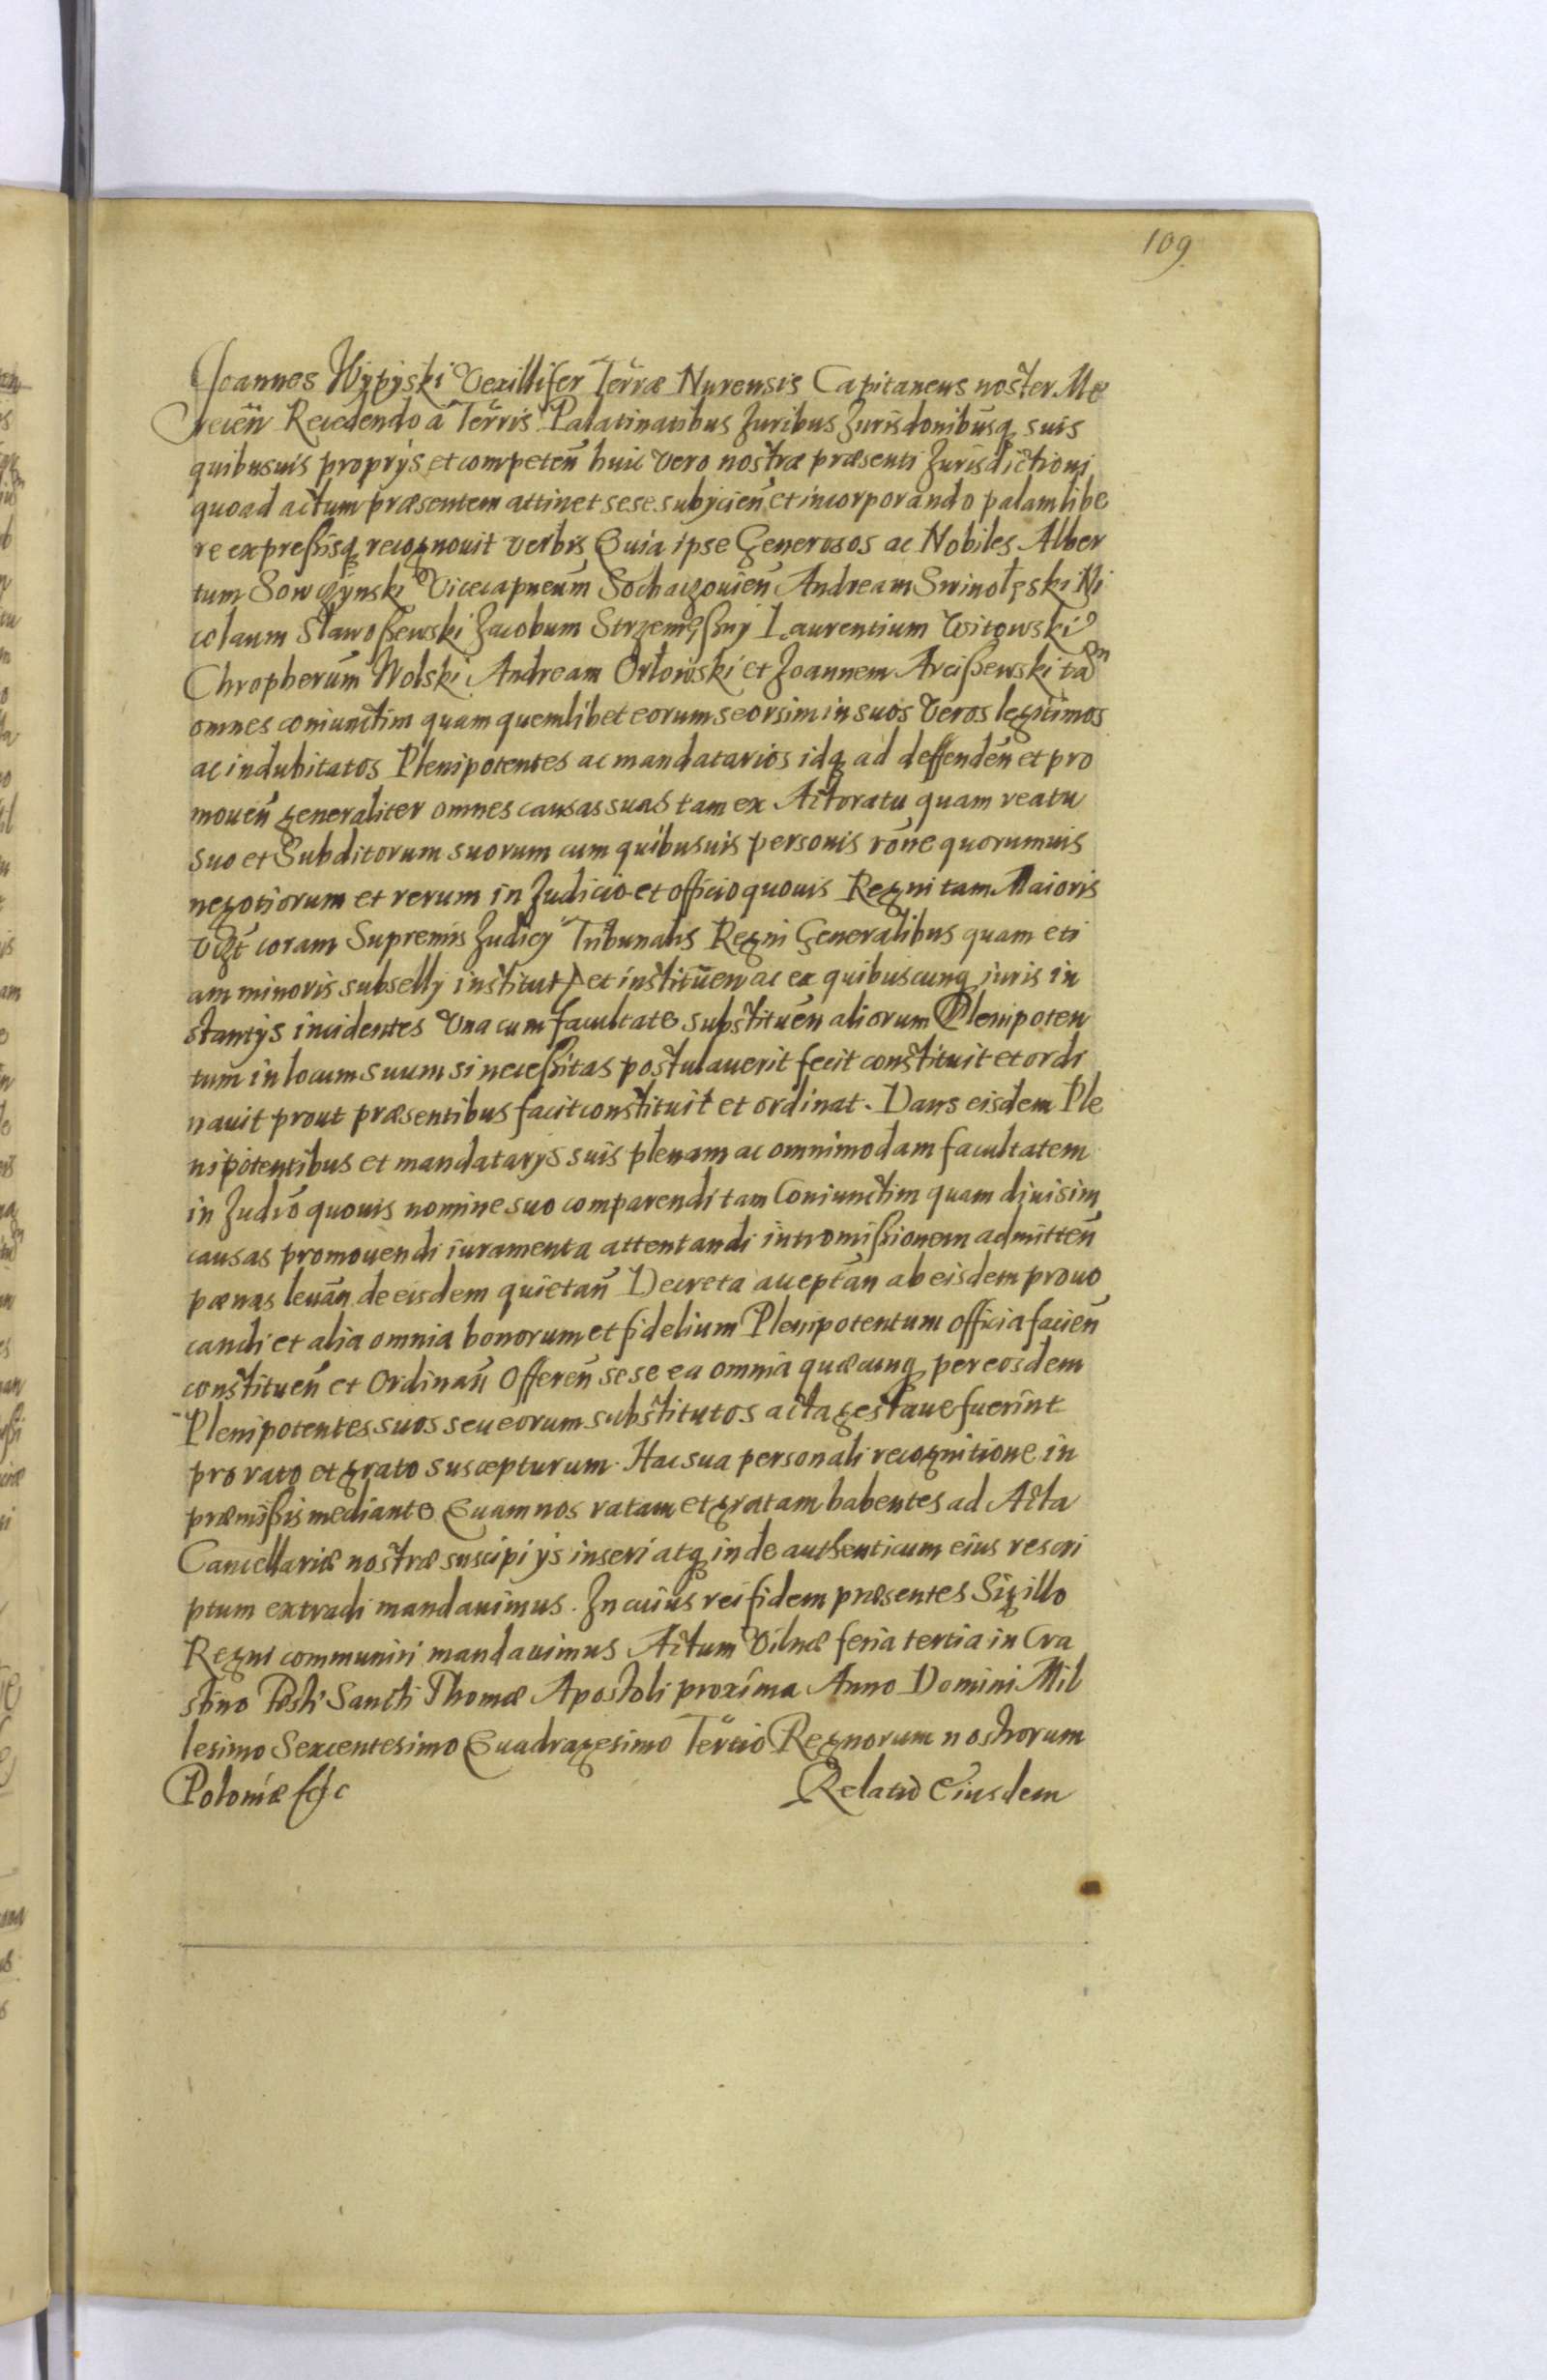 109
Joannes Wypyski Vexillifer Terræ Nurensis Capitaneus noster Me
recien̄ Recedendo à Terris Palatinatibus Juribus Jurisdonibusq suis
quibusuis proprijs et competen̄ huic vero nostræ præsenti Jurisdictioni
quoad actum præsentem attinet sese subijcien̄ et incorporando palam libe
re expressisq recognouit verbis Quia ipse Generosos ac Nobiles Alber
tum Sowczynski Vicecapneum Sochaczouien̄ Andream Swinołęski Ni
colaum Sławoszewski Jacobum Strzemęszny Laurentium Witowski
Chropherum Wolski Andream Orłowski et Joannem Arciszewski tam
omnes coniunctim quam quemlibet eorum seorsim in suos veros legitimos
ac indubitatos Plenipotentes ac mandatarios idq ad deffenden̄ et pro
mouen̄ generaliter omnes causas suas tam ex Actoratu quam reatu
suo et Subditorum suorum cum quibusuis personis rōne quorumuis
negotiorum et rerum in Judicio et officio quouis Regni tam Maioris
vigt coram Supremis Judicij Tribunalis Regni Generalibus quam eti
am minoris subsellij institut et instituen̄ ac ex quibuscunq iuris in
stantijs incidentes Vna cum facultate substituen̄ aliorum Plenipoten
tum in locum suum si necessitas postulauerit fecit constituit et ordi
nauit prout præsentibus facit constituit et ordinat. Dans eisdem Ple
nipotentibus et mandatarijs suis plenam ac omnimodam facultatem
in Judio quouis nomine suo comparendi tam Coniunctim quam diuisim
causas promouendi iuramenta attentandi intromissionem admitten̄
pænas leuan̄ de eisdem quietan̄ Decreta acceptan̄ ab eisdem prouo
candi et alia omnia bonorum et fidelium Plenipotentum officia facien̄
constituen̄ et Ordinan̄ Offeren̄ sese ea omnia quæcunq per eosdem
Plenipotentes suos seu eorum substitutos acta gestaue fuerint
pro rato et grato suscepturum. Hac sua personali recognitione in
præmissis mediante Quam nos ratam et gratam habentes ad Acta
Cancellariæ nostræ suscipi ijs inseri atq inde authenticum eius rescri
ptum extradi mandauimus. In cuius rei fidem præsentes Sigillo
Regni communiri mandauimus Actum Vilnæ feria tertia in Cra
stino Festi Sancti Thomæ Apostoli proxima Anno Domini Mil
lesimo Sexcentesimo Quadragesimo Tertio Regnorum nostrorum
Poloniæ &c Relatio Eiusdem